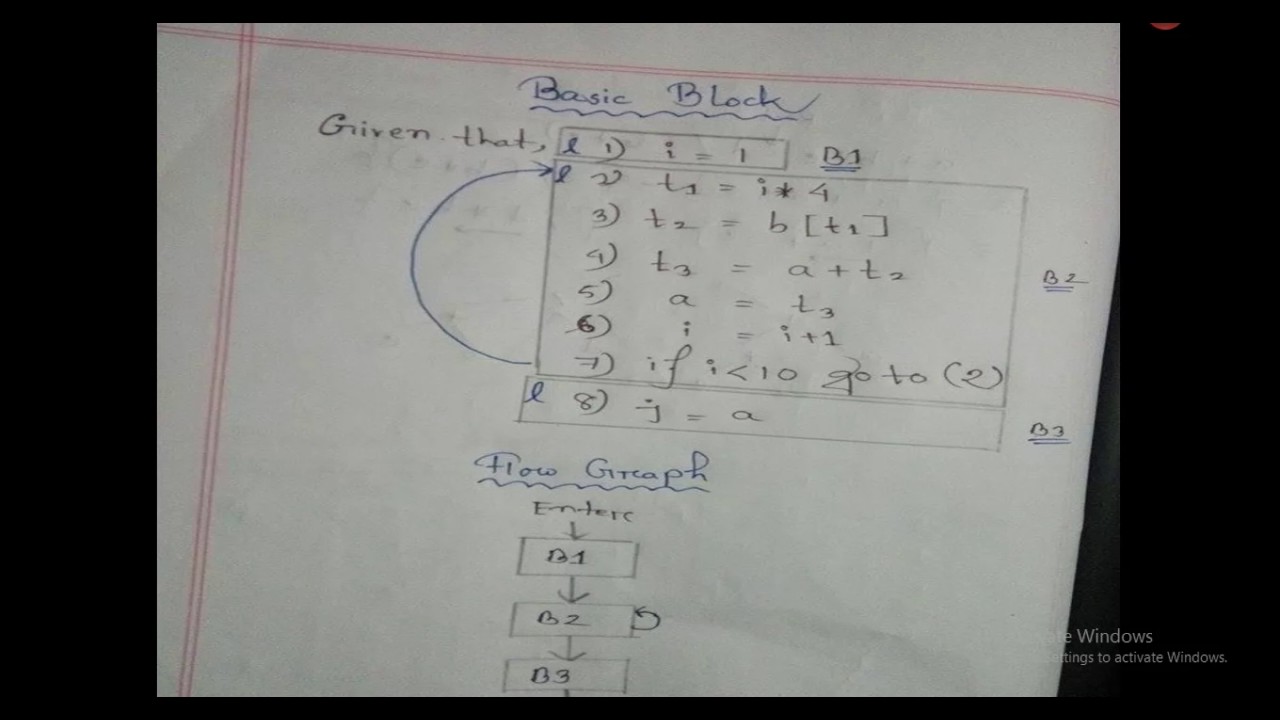 Basic Block
Given that, l 1) i = 1 B1
l 2) t1 = i * 4
3) t2 = b [t1]
4) t3 = a + t2
B2
5) a = t3
6) i = i+1
7) if i < 10 go to (2)
l 8) j = a
B3
Flow Graph
Enter
B1
B2
B3
Windows
ettings to activate Windows.